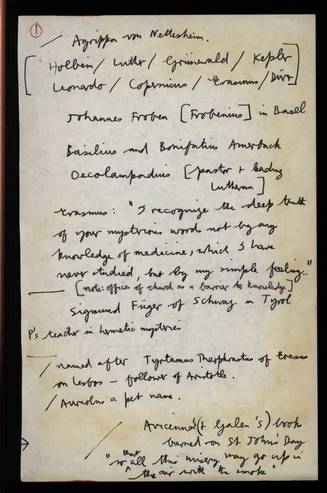 ①
Agrippa von Nettesheim.
[Holbein / Luther / Grünewald / Kepler
Leonardo / Copernicus / Erasmus / Dürer]
Johannes Froben [Frobenius] in Basell
Basilius and Bonifatius Amerbach
Oecolampadius [pastor + leading
Lutheran]
Erasmus: "I recognize the deep truth
of your mysterious word not by any
knowledge of medicine, which I have
never studied, but by my simple feeling."
[note: offices of church as a barrier to knowledge]
Sigmund Füger of Schwaz in Tyrol
P's teacher in hermetic mysteries
/ named after Tyrtamus Theophrastus of Eresus
on Lesbos – follower of Aristotle.
/ Aureolus a pet name.
/ Avicenna's (+ Galen's) book
burned on St John's Day
"so that all this misery may go up in
the air with the smoke"